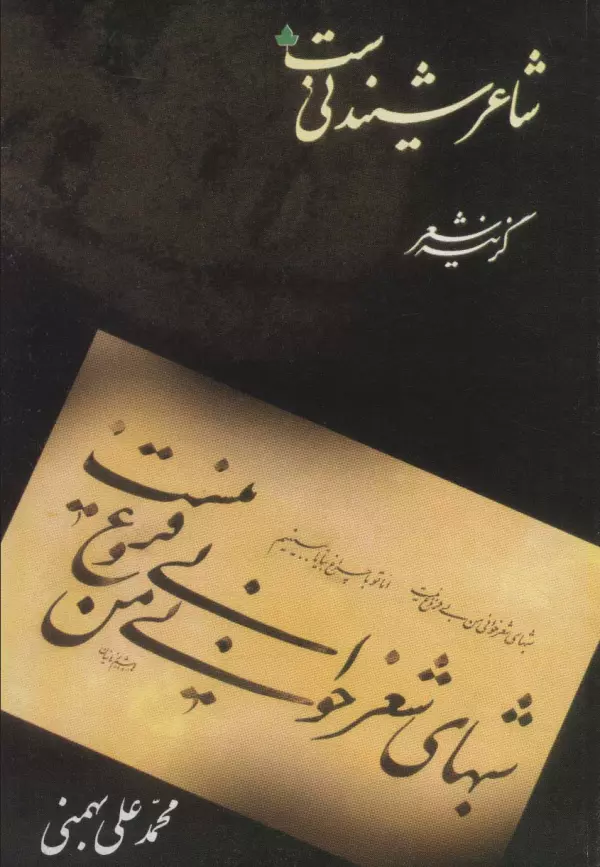 شاعر شنیدنی ست
گزینه شعر
شبهای شعرخوانی من بی فروغ نیست
اما تو با چراغ بیا تا ببینیم
شبهای شعرخوانی من بی فروغ نیست
محمد علی بهمنی